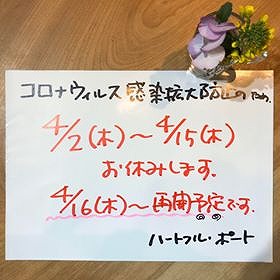 コロナウィルス感染拡大防止のため、
4/2(木)～4/15(水)
お休みします。
4/16(木)～再開予定です。
ハートフル・ポート